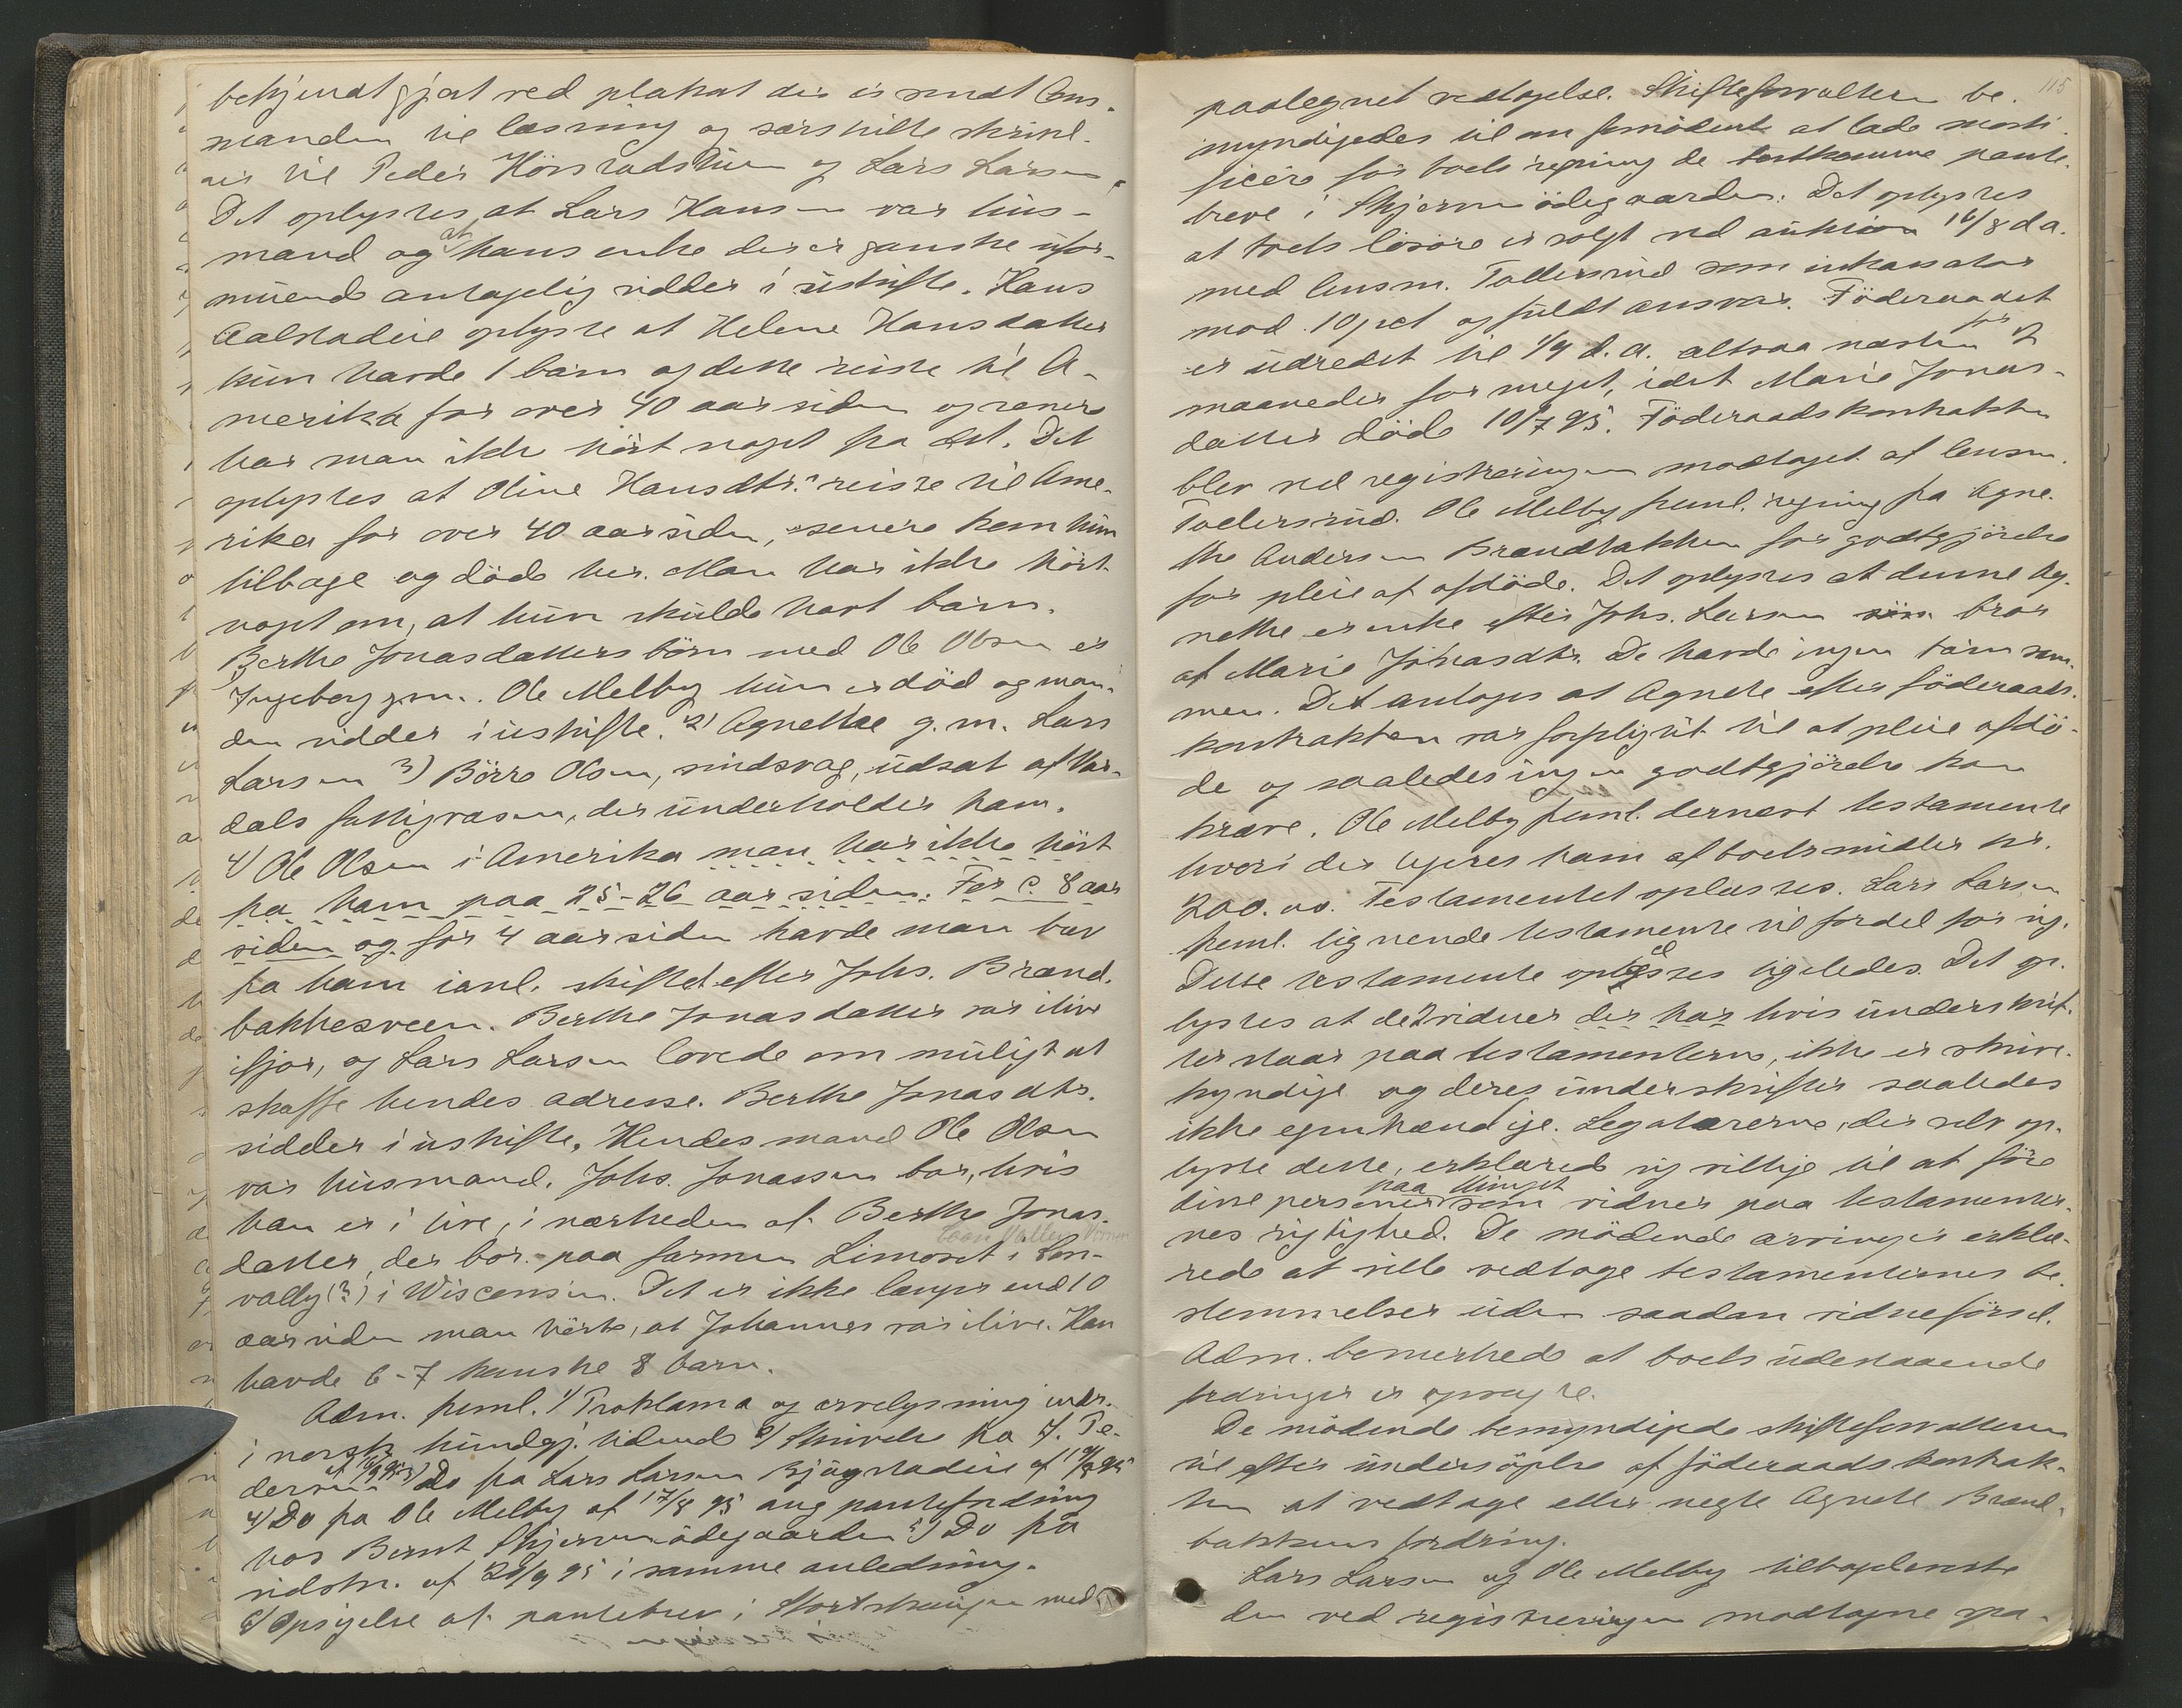 bekjendtgjort ved plakat der er sendt lens-
manden til læsning og særskilte skrivel-
ser til Peder Hörstadstuen og Lars Larsen.
Det oplystes, at Lars Hansen var hus-
mand og at hans enke der er ganske ufor-
muende antagelig sidder i uskifte. Hans
Aalstadeie oplyste at Helene Hansdatter
kun havde 1 barn og dette reiste til A-
merika for over 40 aar siden og senere
har man ikke hört noget fra det. Det
oplystes at Oline Hansdtr. reiste til Ame-
rika for over 40 aar siden, senere kom hun
tilbage og döde her. Man har ikke hört
noget om, at hun skulde havt barn.
Berthe Jonasdatters börn med Ole Olsen er
Ingeborg g.m. Ole Melby hun er död og man-
den sidder i uskifte. 2) Agnethe g.m. Lars
Larsen 3) Börre Olsen, sindsvag, udsat af Var-
dals fattigvæsen, der underholder ham.
4) Ole Olsen i Amerika man har ikke hört
fra ham paa 25-26 aar siden. For c. 8 aar
siden og for 4 aar siden havde man brev
fra ham ianl. skiftet efter Johs. Brænd-
bakkesveen. Berthe Jonasdatter var ilive
ifjor, og Lars Larsen lovede om muligt at
skaffe hendes adresse. Berthe Jonasdtr.
sidder i uskifte. Hendes mand Ole Olsen
var husmand. Johs. Jonassen bor, hvis
han er i live, i nærheden af Berthe Jonas-
Coon Valley
datter, der bor paa farmen Limoset i Con-
vally (?) i Wisconsin. Det er ikke længer end 10
aar siden man hörte, at Johannes var ilive. Han
havde 6-7 kanske 8 barn.
Adm. freml. 1) Proklama og arvelysning indr.
i norsk kundgj. tidende 2) Skrivelse fra J. Pe-
dersen af 6/9 95 3) Do fra Lars Larsen Bjugstadeie af 19/8 95
4) Do fra Ole Melby af 17/8 95 ang pantefordring
hos Bernt Skjervenödegaarden 5) Do fra
sidstn. af 20/9 95 i samme anledning.
6) Opsigelse af pantebrev i Stortskeugen med
115
paategnet vedtagelse. Skifteforvalteren be-
myndigedes til om fornödent at lade morti-
ficere for boets regning de bortkomne pante-
breve i Skjervenödegaarden. Det oplystes
at boets lösöre er solgt ved auktion 16/8 d.a.
med lensm. Tollersrud som inkassator
mod 10 pct og fuldt ansvar. Föderaadet
er udredet til 1/9 d.a. altsaa næsten for 2
maaneder for meget, idet Marie Jonas-
datter döde 10/7 95. Föderaadskontrakten
blev ved registreringen modtaget af lensm.
Tollersrud. Ole Melby freml. regning fra Agne-
the Andersen Brændbakken for godtgjörelse
for pleie af afdöde. Det oplystes at denne Ag-
nethe er enke efter Johs. Larsen bror
af Marie Jonasdtr. De havde ingen barn sam-
men. Det antoges at Agnete efter föderaads-
kontrakten var forpligtet til at pleie afdö-
de og saaledes ingen godtgjörelse kan
kræve. Ole Melby freml. dernæst testamente
hvori der legeres ham af boets midler kr.
200.00. Testamentet oplæstes. Lars Larsen
freml. lignende testamente til fordel for sig.
Dette testamente oplæstes ligeledes. Det op-
lystes at de 2 vidner der har hvis underskrif-
ter staar paa testamenterne, ikke er skrive-
kyndige og deres underskrifter saaledes
ikke egenhændige. Legatarerne, der selv op-
lyste dette, erklærede sig villige til at före
paa thinget
disse personer som vidner paa testamenter-
nes rigtighed. De mödende arvinger erklæ-
rede at ville vedtage testamenternes be-
stemmelser uden saadan vidneförsel.
Adm. bemerkede at boets udestaaende
fordringer er opsagte.
De mödende bemyndigede skifteforvalteren
til efter undersögelse af föderaadskontrak-
ten at vedtage eller negte Agnete Brænd-
bakkens fordring.
Lars Larsen og Ole Melby tilbageleverte
den ved registreringen modtagne spa-